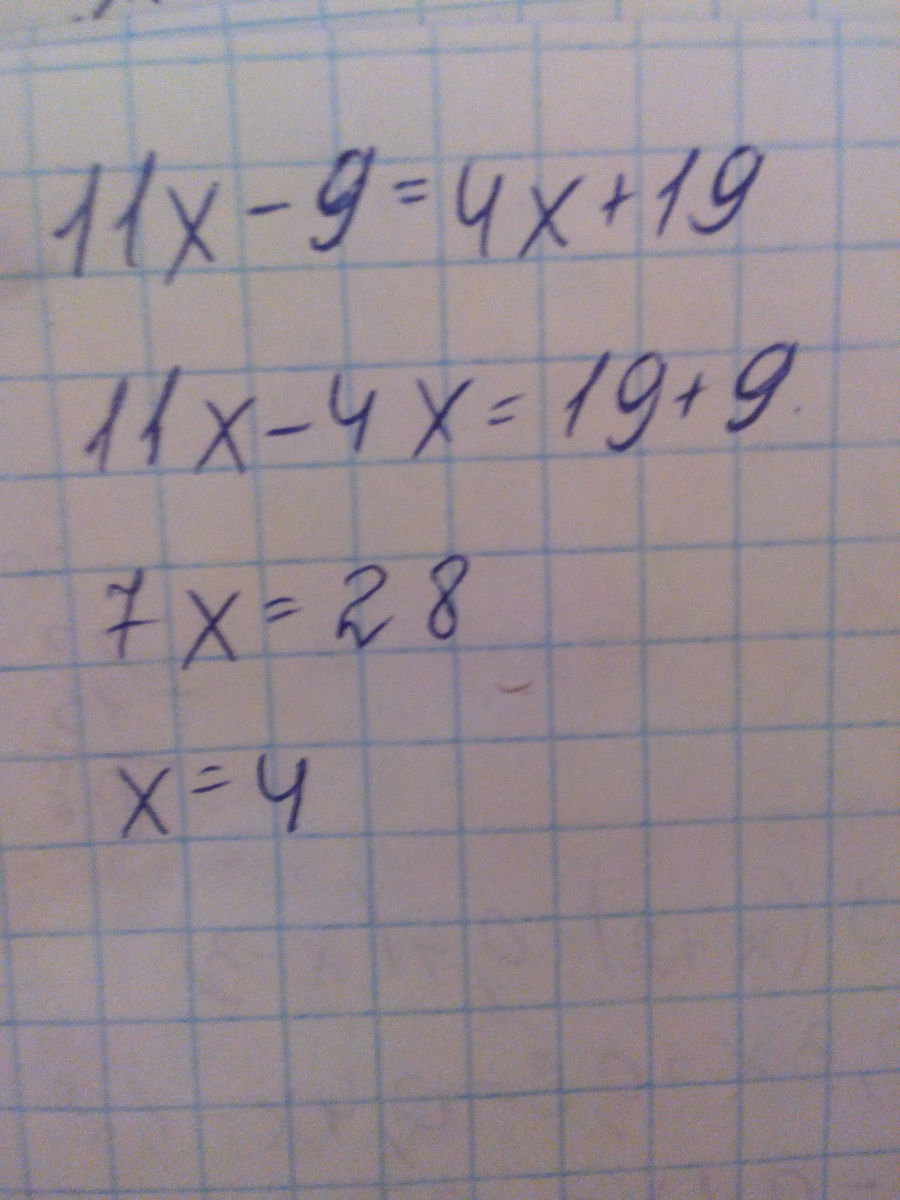 11x - 9 = 4x + 19
11x - 4x = 19 + 9
7x = 28
x = 4